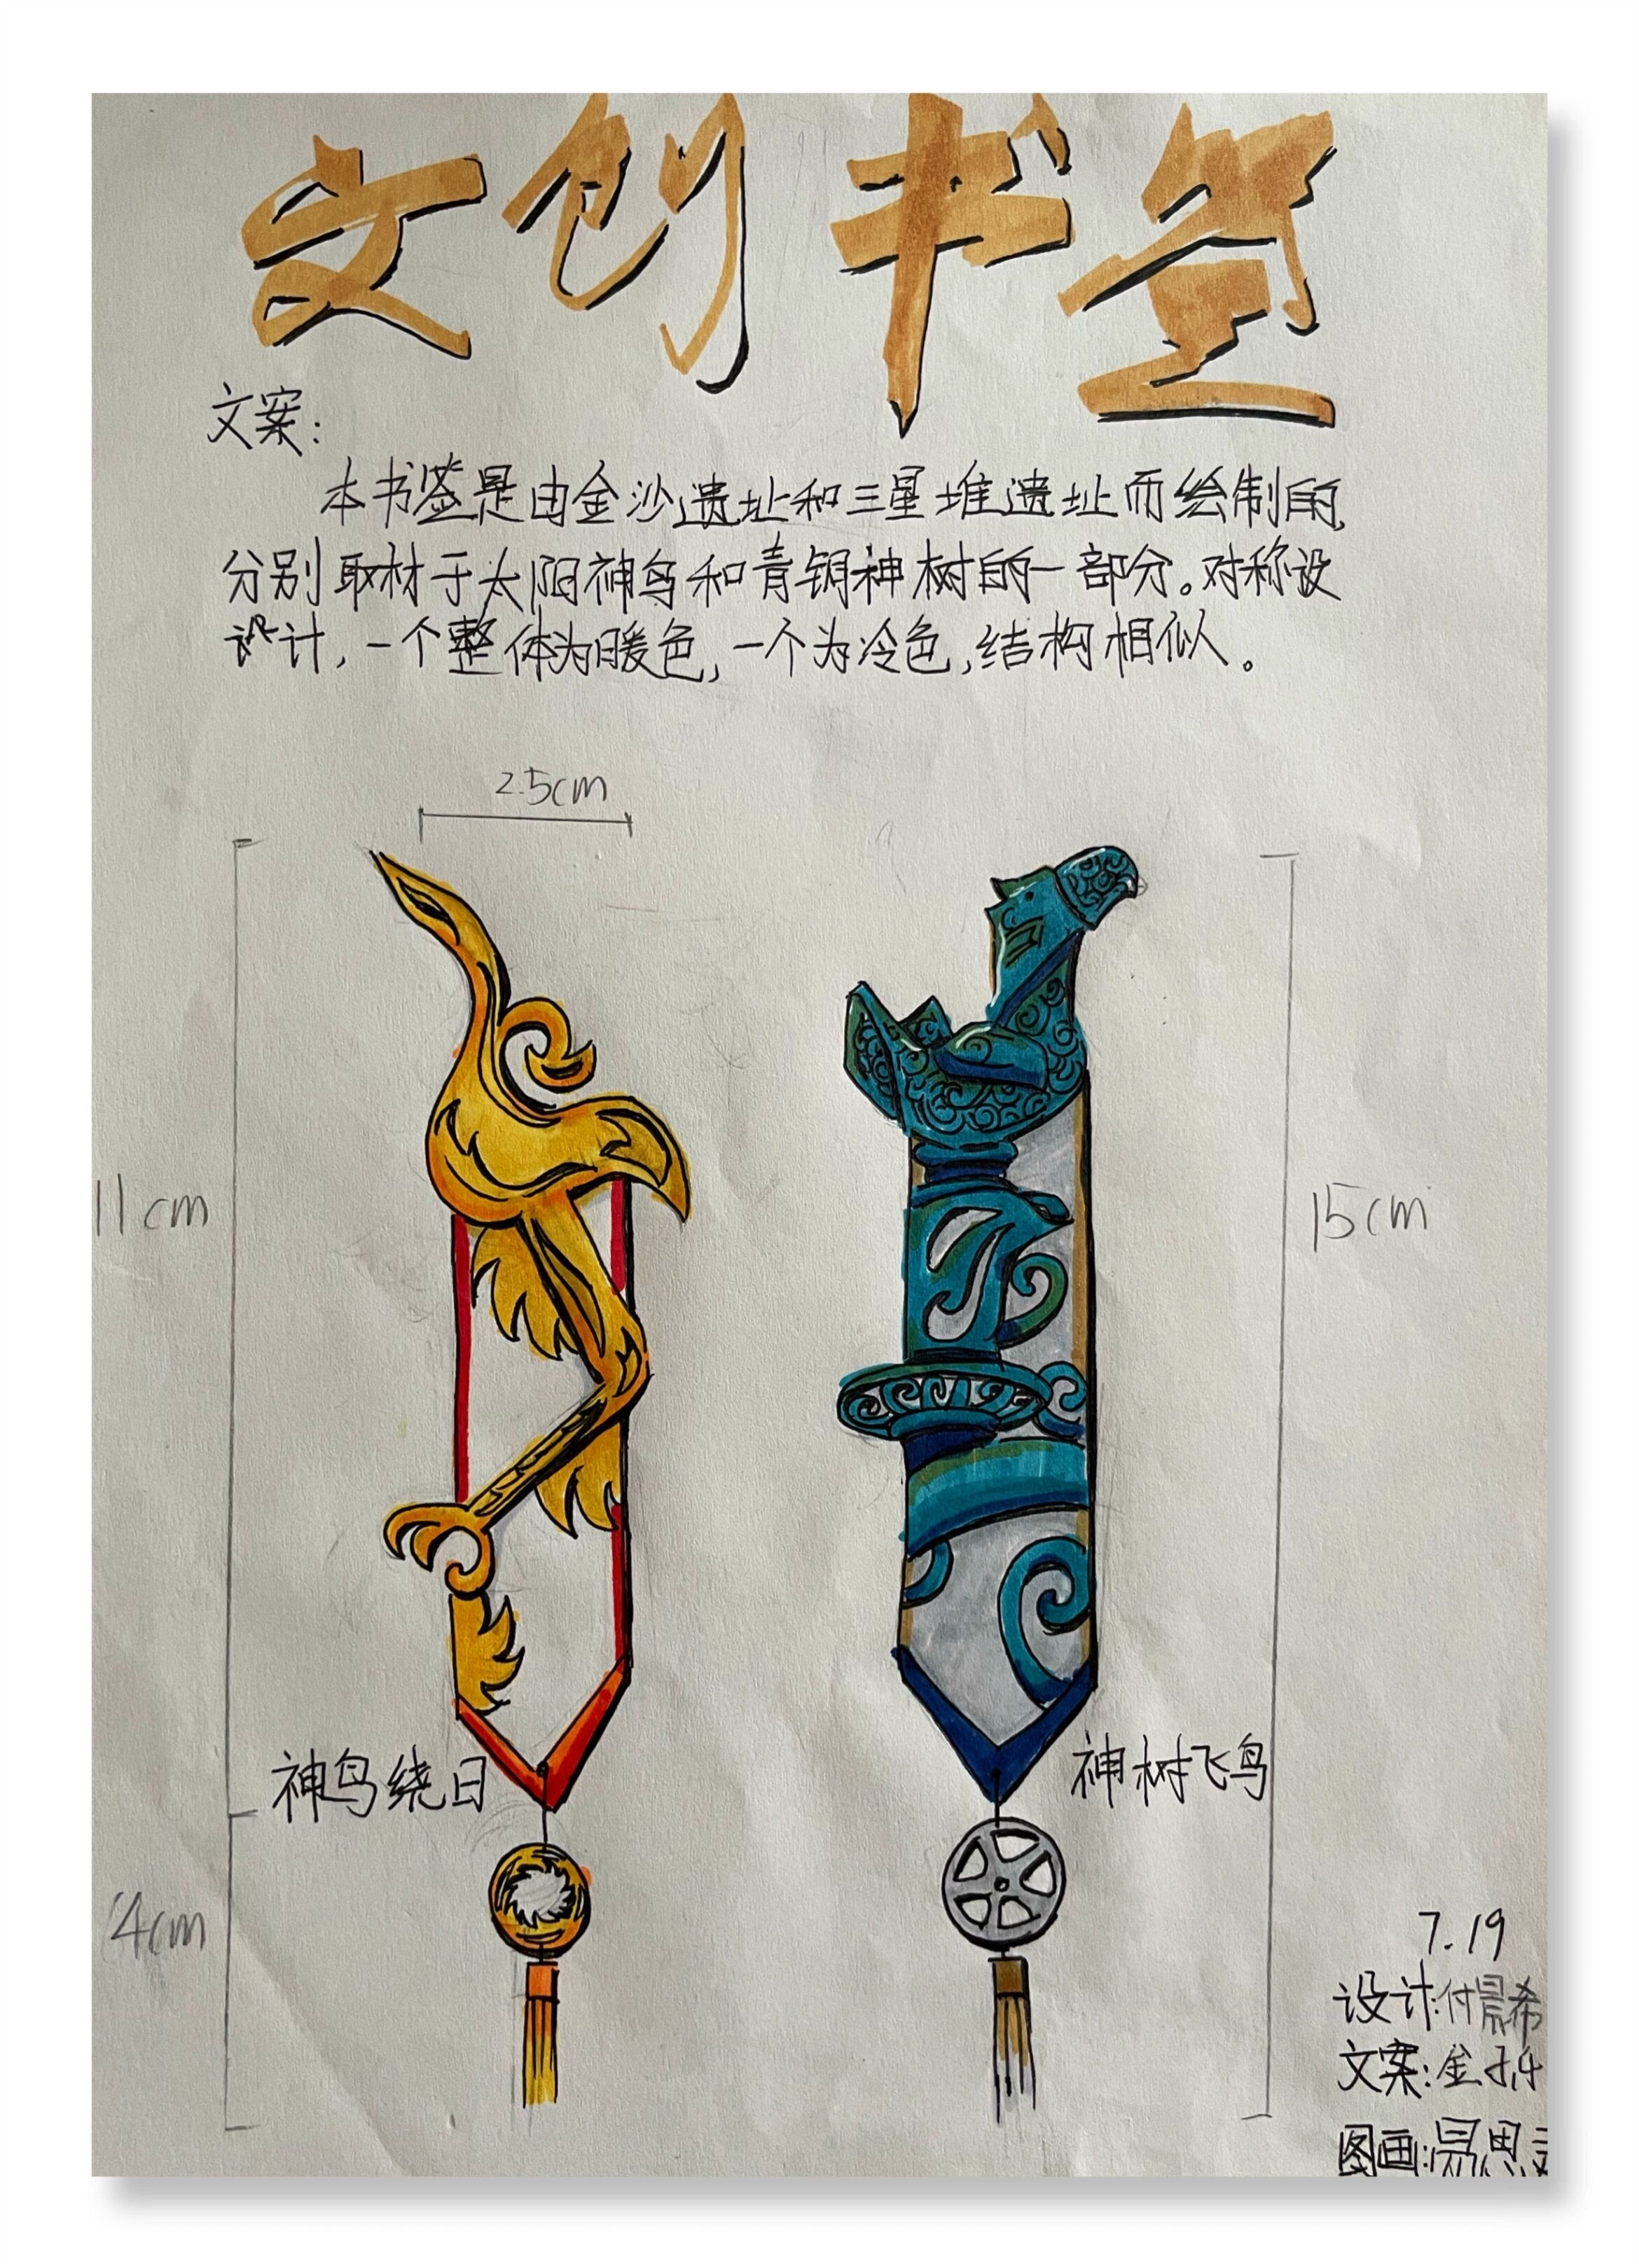 文创书签
文案:
本书签是由金沙遗址和三星堆遗址而绘制的,
分别取材于太阳神鸟和青铜神树的一部分。对称设
设计,一个整体为暖色,一个为冷色,结构相似。
2.5cm
11cm
15cm
神鸟绕日
神树飞鸟
4cm
7.19
设计:付晨希
文案:金
图画:易思